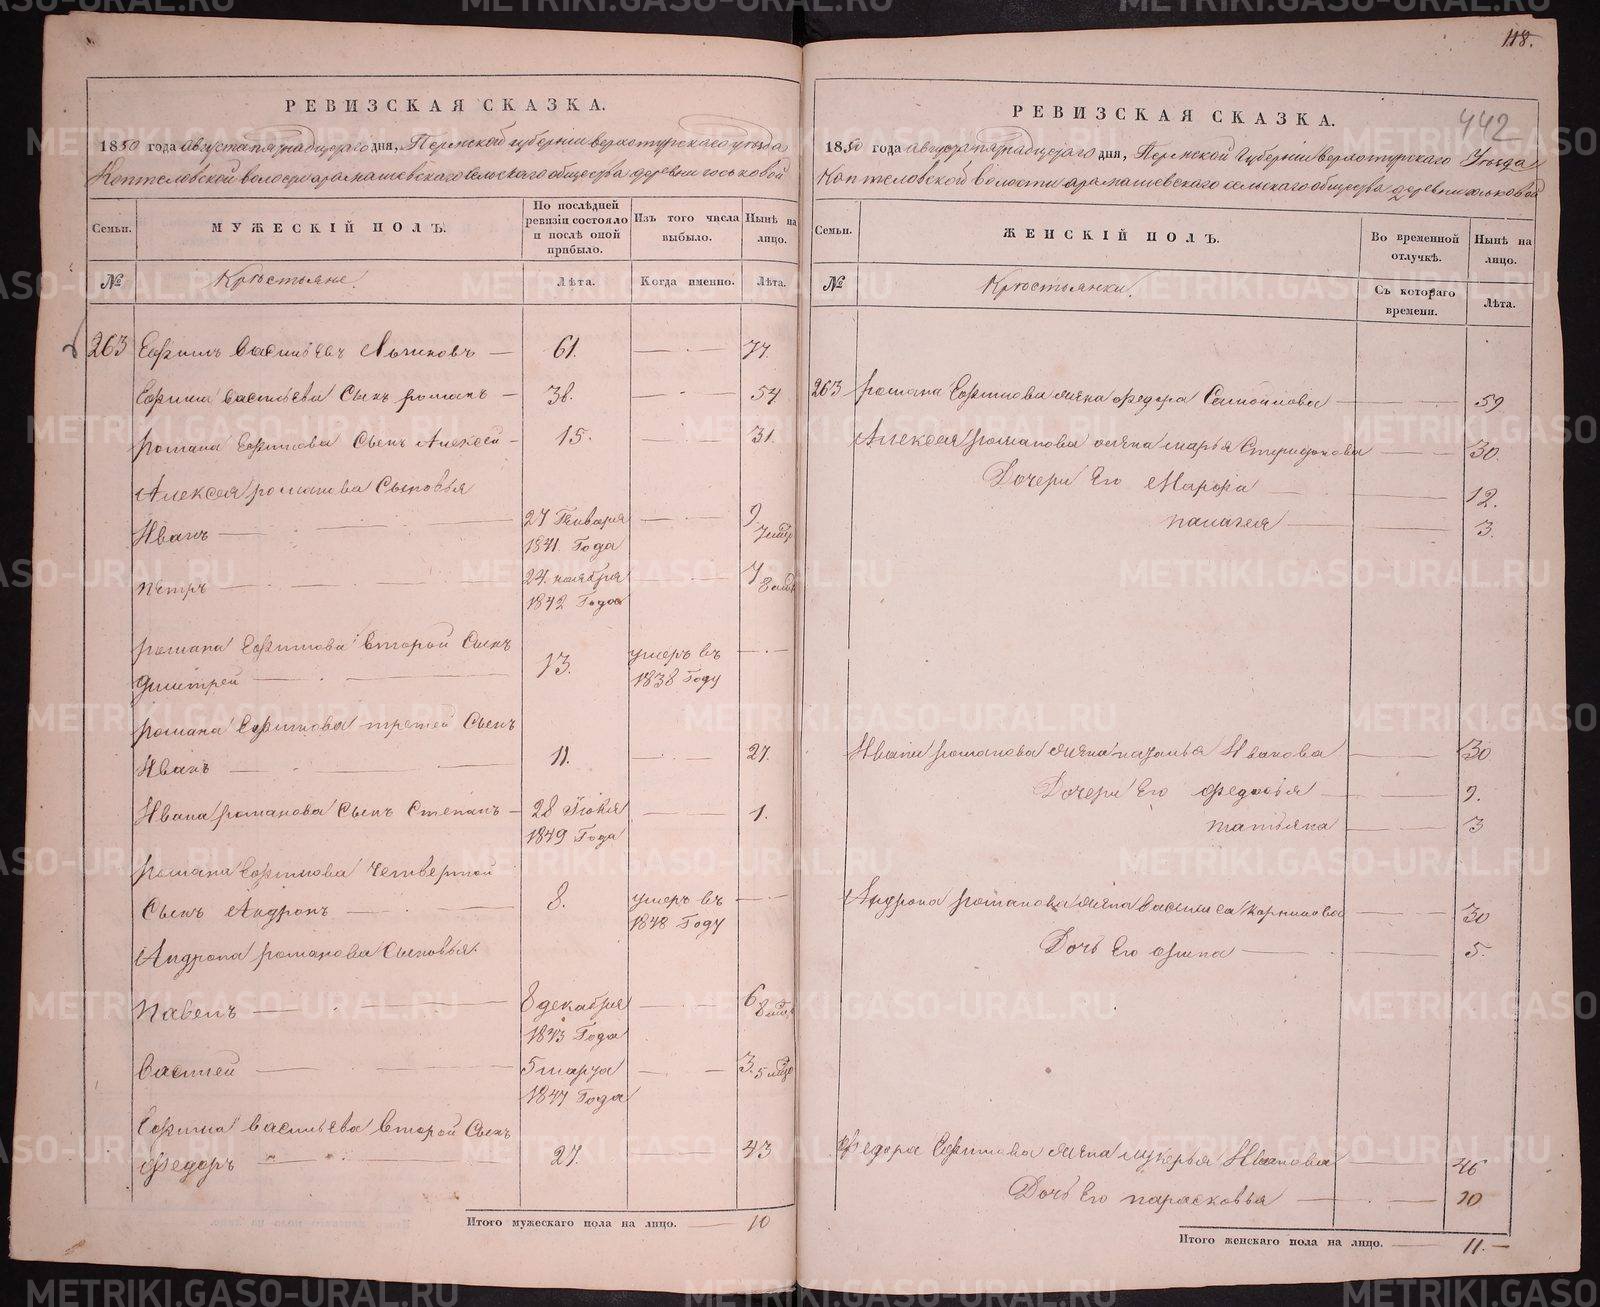 118.
442
РЕВИЗСКАЯ СКАЗКА.
1850 года августа пятнадцатого дня, Пермской губернии верхотурского уезда
Коптеловской волости арамашевского сельского общества деревни госьковой
Семьи.
МУЖЕСКІЙ ПОЛЪ.
По послѣдней ревизіи состояло и послѣ оной прибыло.
Изъ того числа выбыло.
Нынѣ на лицо.
№
Крестьяне.
Лѣта.
Когда именно.
Лѣта.
263 Ефимъ Васильевъ 61. 77.
Ефима Васильева Сынъ романъ 38. 54
романа Ефимова Сынъ Алексей 15. 31.
Алексея романова Сыновья
Иванъ 27 Генваря 1841. Года 9 7 мцъ
петръ 24. ноября 1842 Года 7 8 мцъ
романа Ефимова второй Сынъ
дмитрей 13. умеръ въ 1838 Году
романа Ефимова третей Сынъ
Иванъ 11. 27.
Ивана романова Сынъ Степанъ 28 Іюля 1849 Года 1.
романа Ефимова четвертой
Сынъ Андронъ 8. умеръ въ 1848 Году
Андрона романова Сыновья
павелъ 8 декабря 1843 Года 6 8 мцъ
василей 5 марта 1847 Года 3. 5 мцъ
Ефима васильева второй Сынъ
федоръ 27. 43
Итого мужескаго пола на лицо. 10
РЕВИЗСКАЯ СКАЗКА.
1850 года августа пятнадцатого дня, Пермской Губернии верхотурского Уезда
Коптеловской волости арамашевского сельского общества деревни госьковой
Семьи.
ЖЕНСКІЙ ПОЛЪ.
Во временной отлучкѣ.
Нынѣ на лицо.
№
Крестьянки.
Съ котораго времени.
Лѣта.
263 романа Ефимова жена федора Самойлова 59
Алексея романова жена марья Спиридонова 30.
Дочери Его Марфа 12.
палагея 3.
Ивана романова жена наталья Иванова 30
Дочери Его федосья 9.
татьяна 3
Андрона романова жена василиса 30
Дочь Его 5.
федора Ефимова жена лукерья Иванова 46
Дочь Его парасковья 10
Итого женскаго пола на лицо. 11.
METRIKI.GASO-URAL.RU